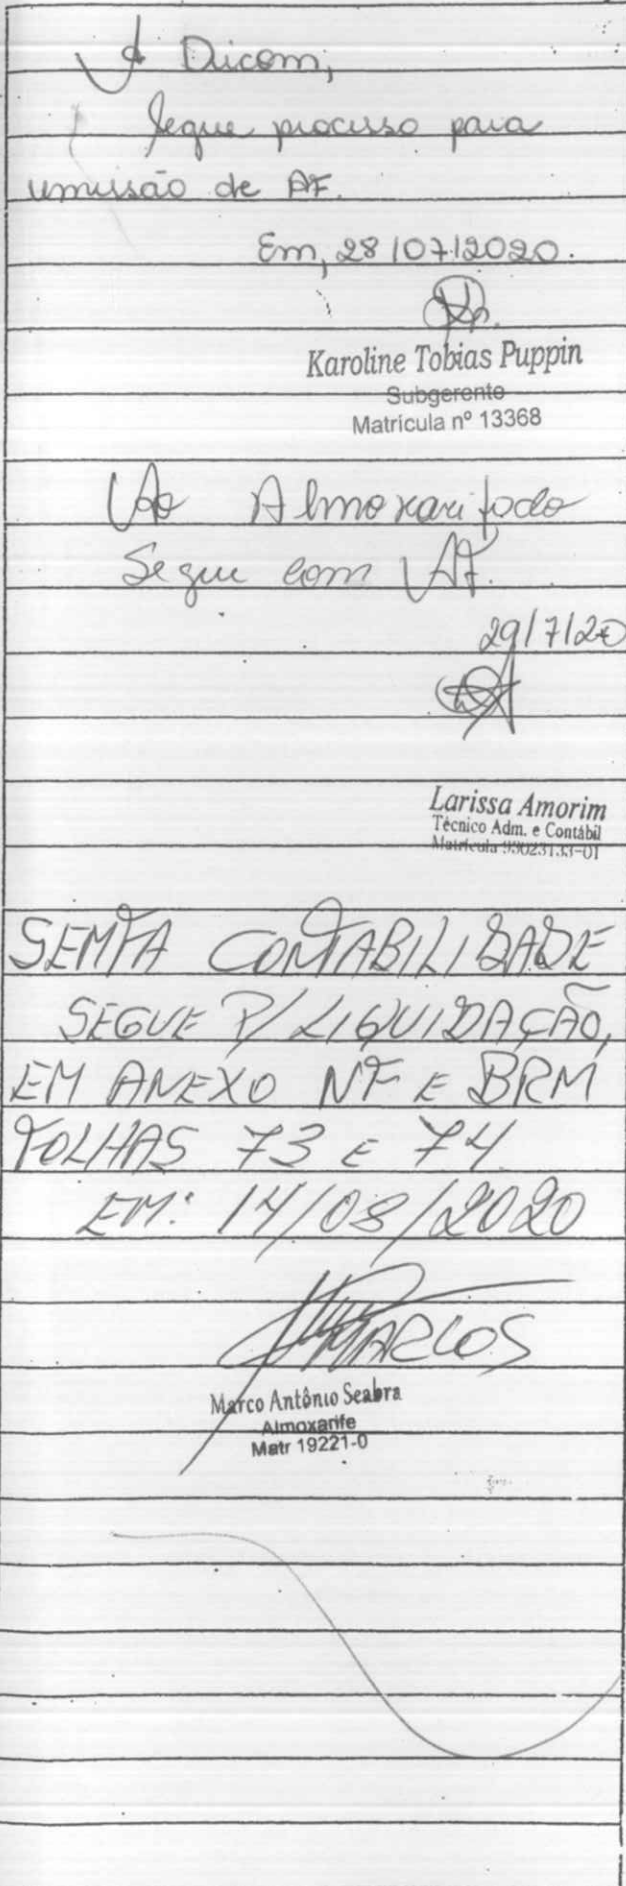 À Dicom,
Segue processo para
emissão de AF.
Em, 28/07/2020.
Karoline Tobias Puppin
Subgerente
Matrícula nº 13368
Ao Almoxarifado
Segue com AF.
29/7/20
Larissa Amorim
Técnico Adm. e Contábil
Matrícula 99023133-01
SEMFA CONTABILIDADE
SEGUE P/ LIQUIDAÇÃO,
EM ANEXO NF E BRM
FOLHAS 73 E 74
EM: 14/08/2020
MARCOS
Marco Antônio Seabra
Almoxarife
Matr 19221-0